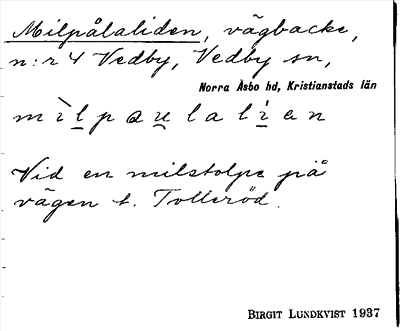 Milpålaliden, vägbacke,
n:r 4 Vedby, Vedby sn,
Norra Åsbo hd, Kristianstads län
Vid en milstolpe på
vägen t. Tolleröd.
BIRGIT LUNDKVIST 1937